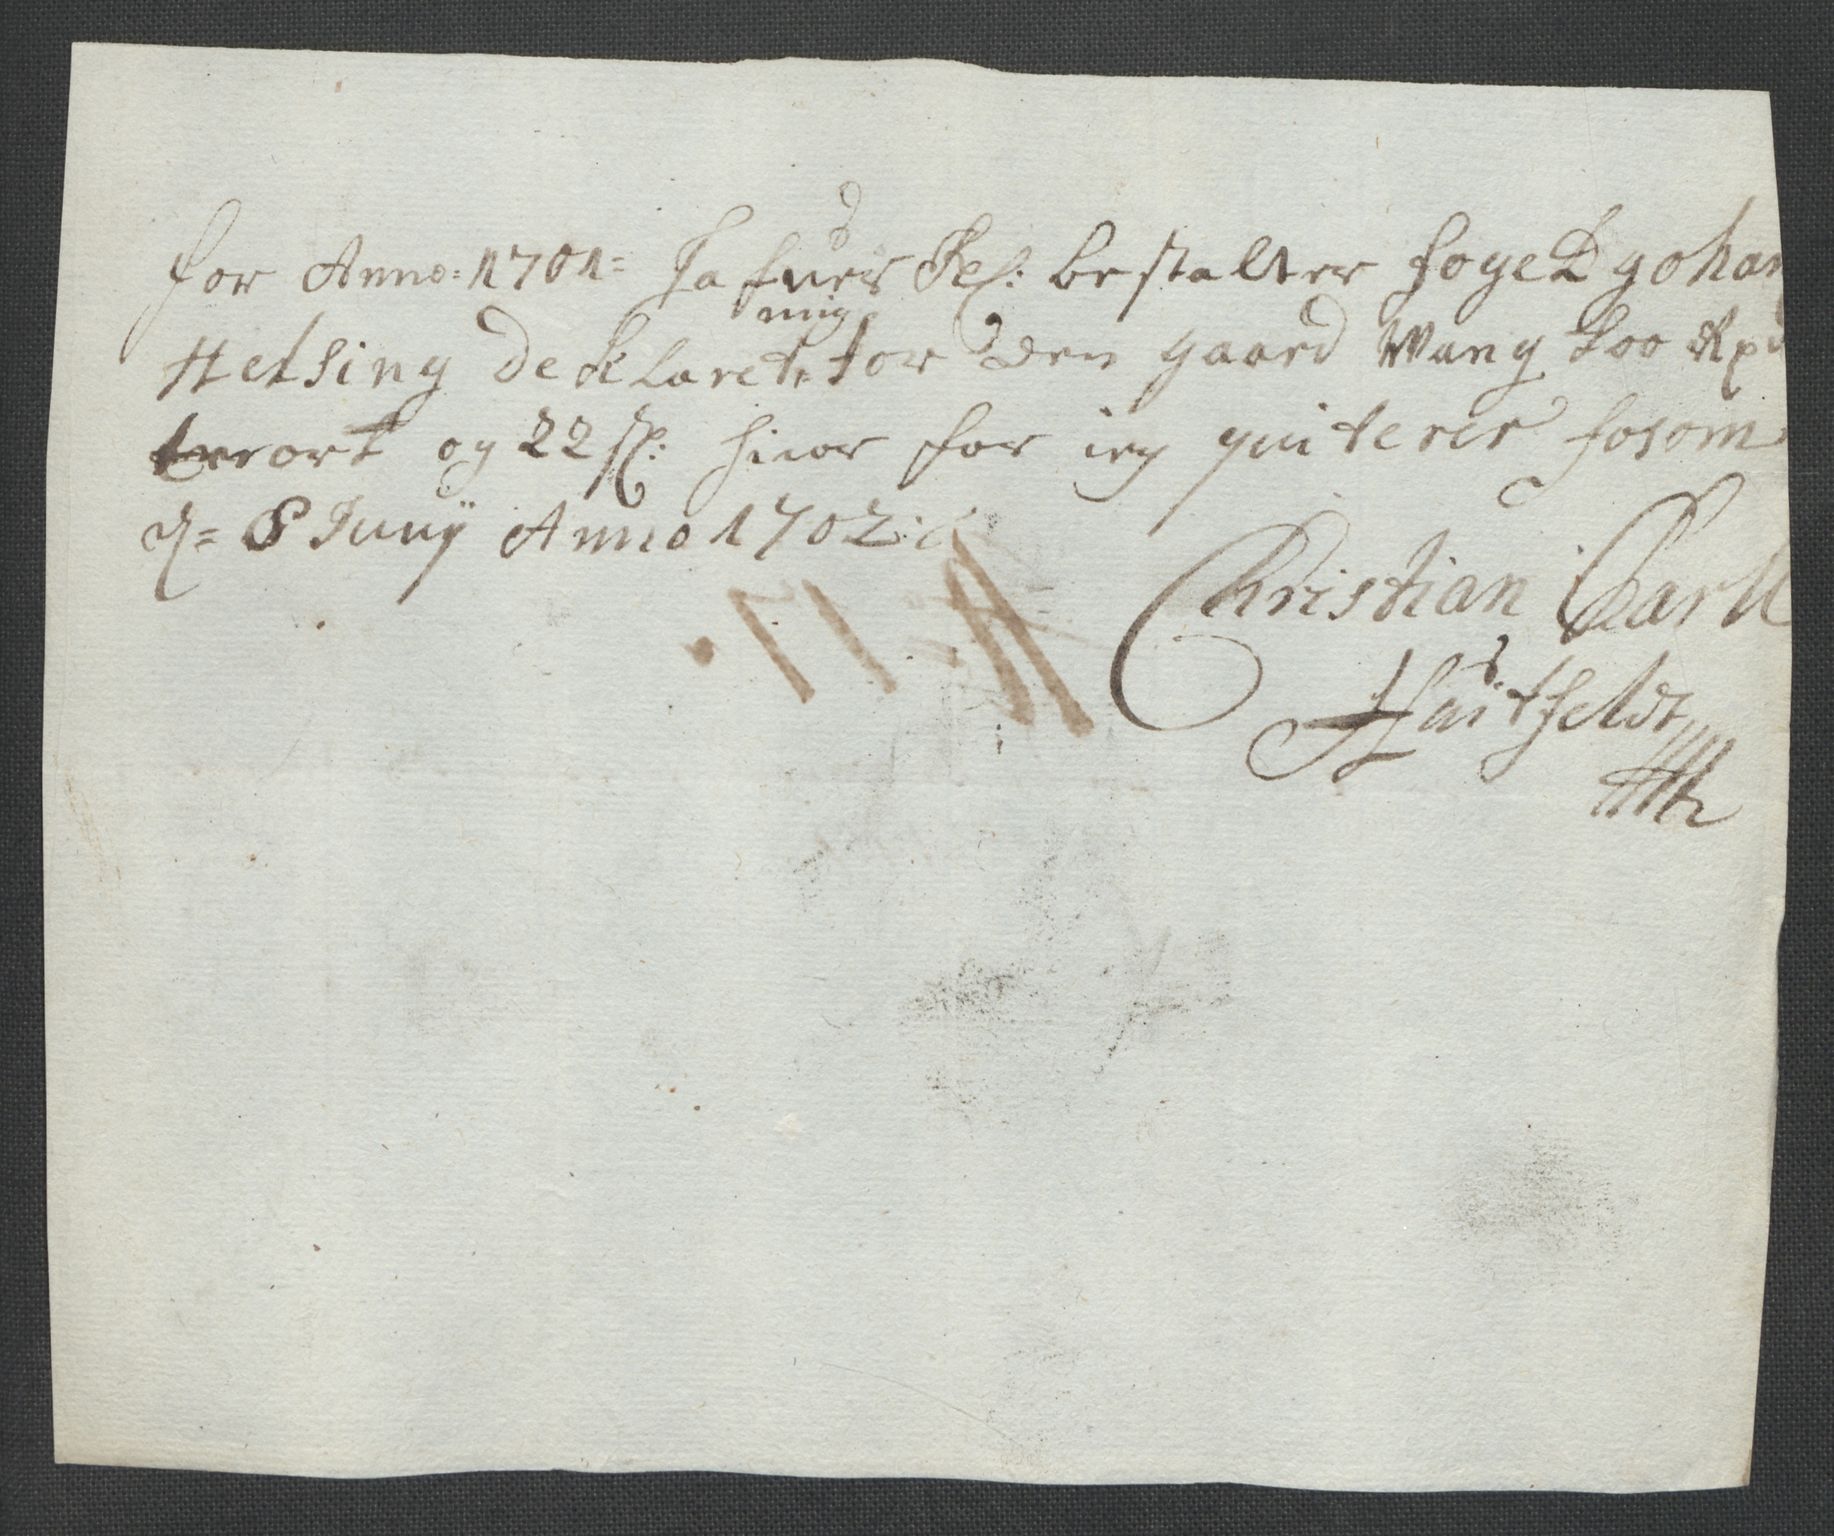 for Anno: 1701= Hafuer Kl: bestalter foged Johan
Helsing Deklaret mig for den gaard Wang too Rp
ort og 22 sk: huor for ieg quiterer fosom
d= 8 Juny Anno 1702:
Christian Carll
Huitfeldt
N: 17.